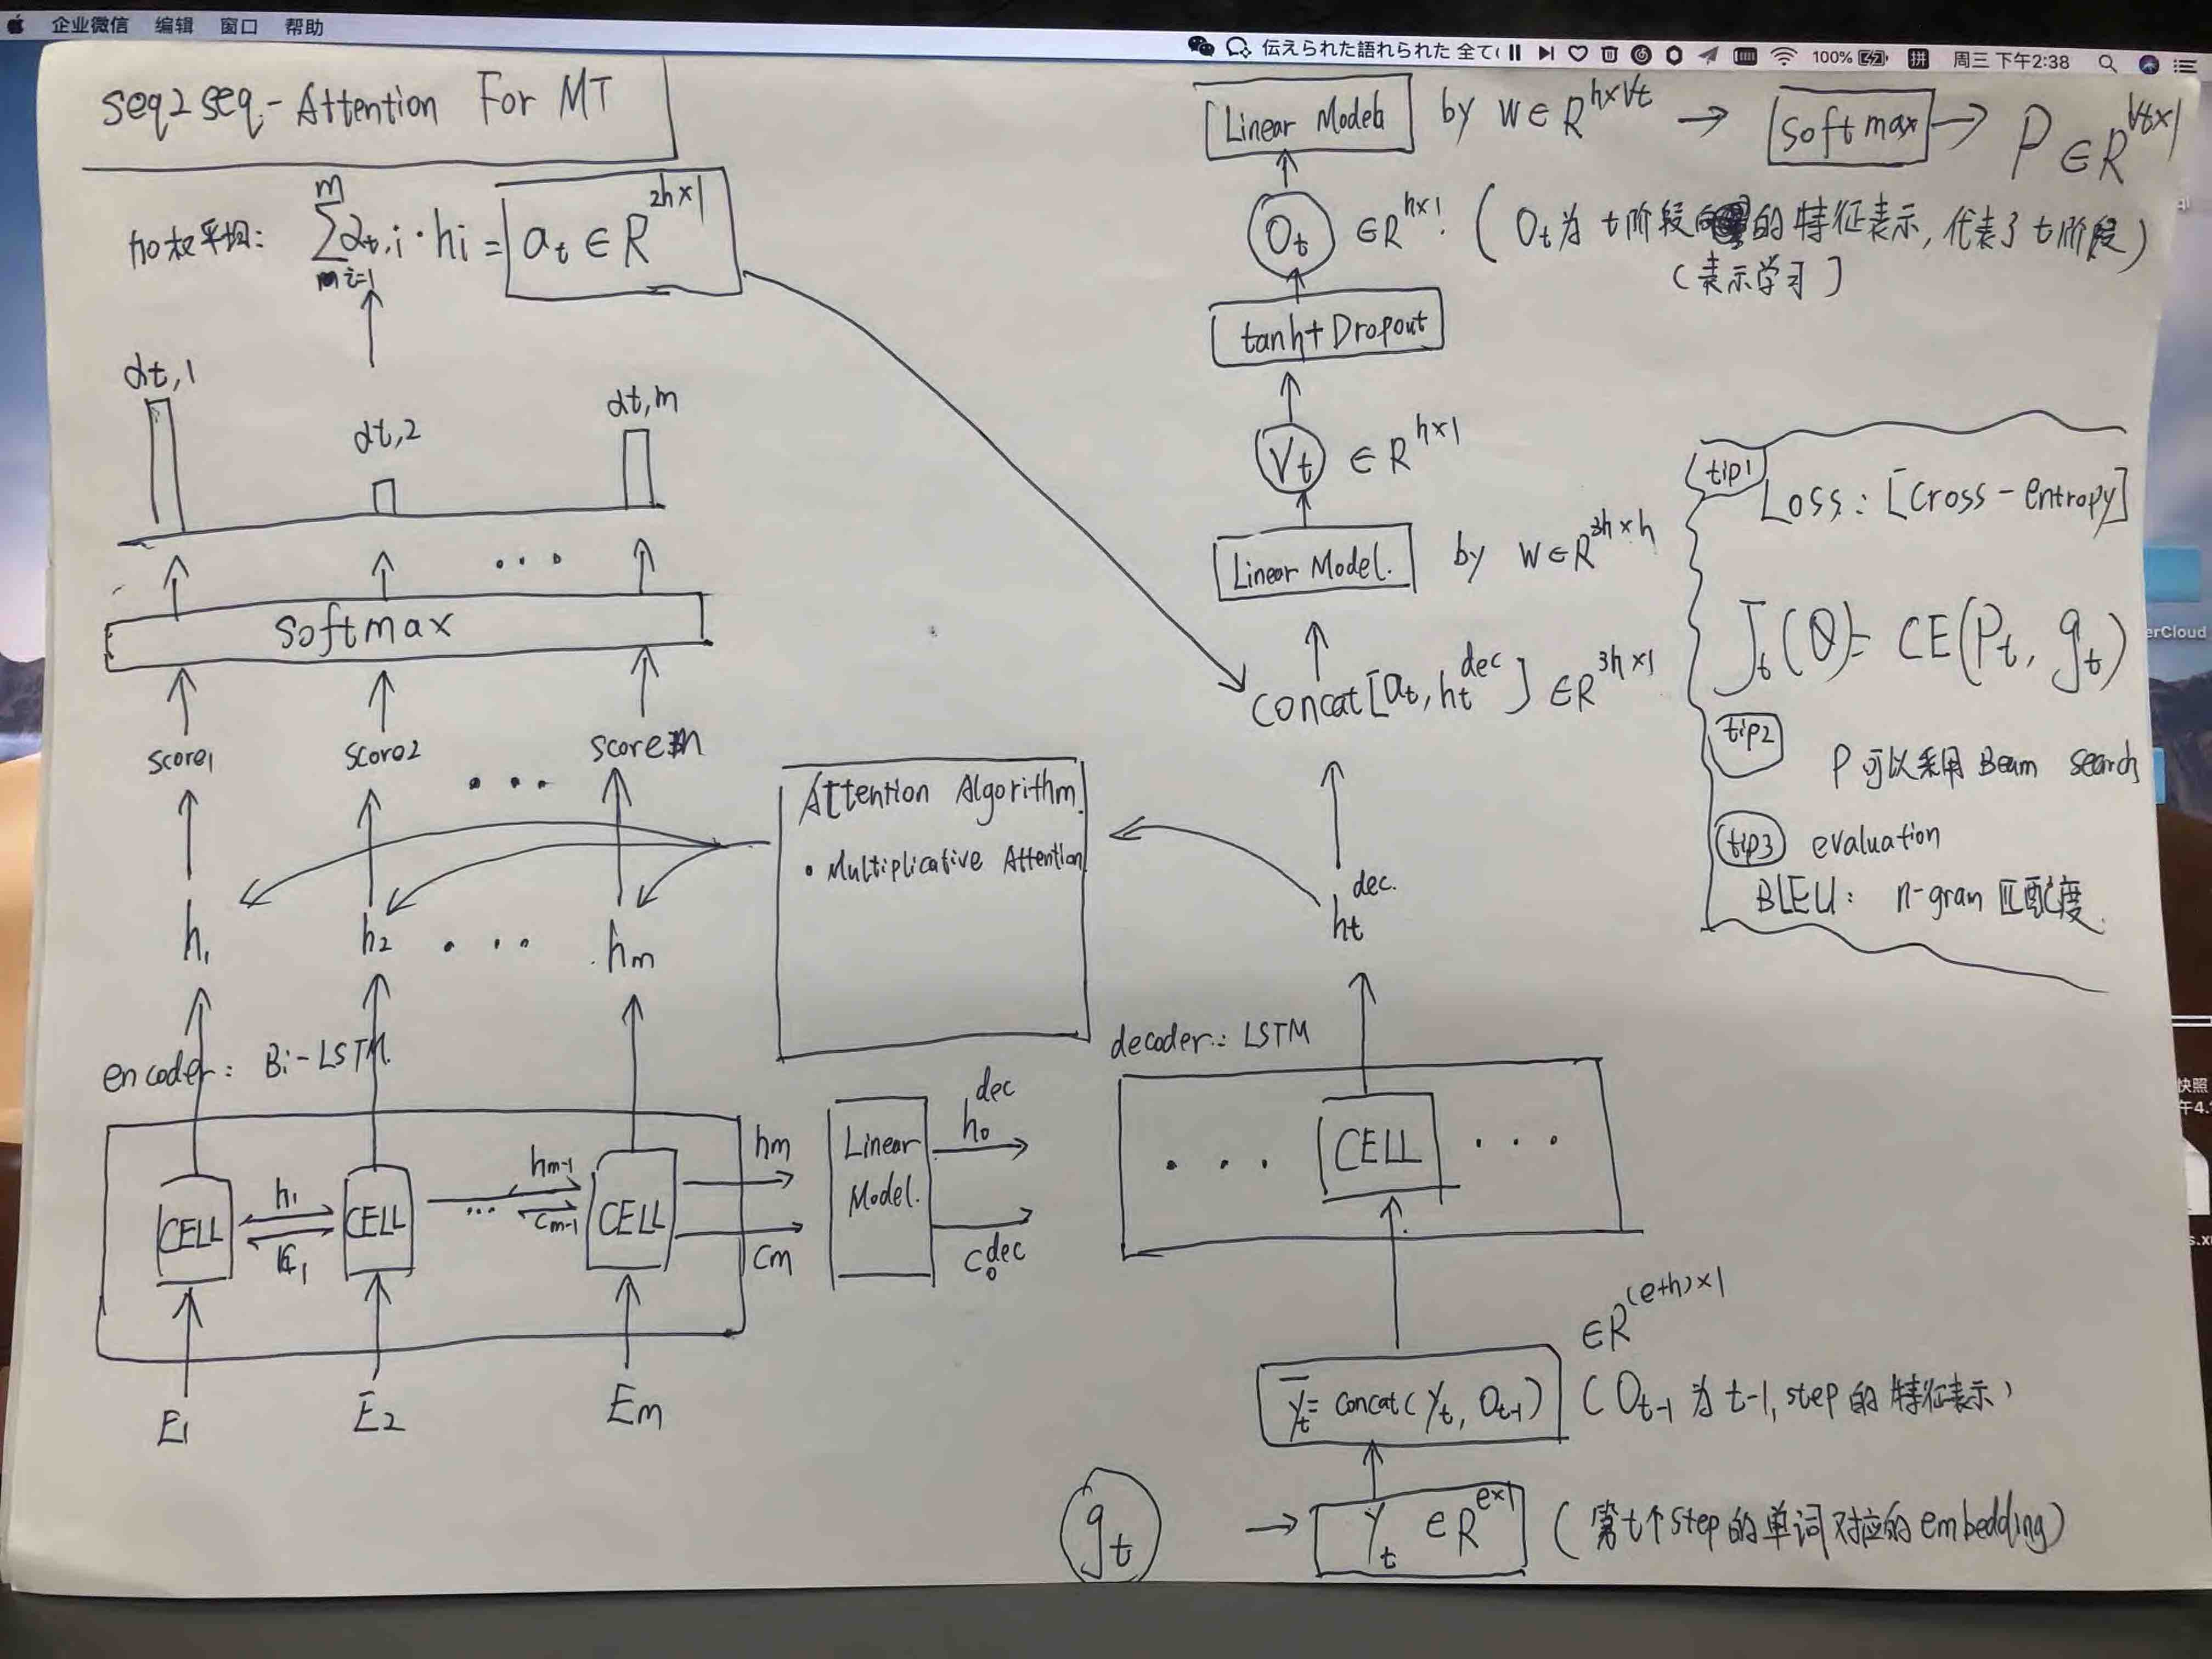 企业微信 编辑 窗口 帮助
伝えられた語れられた 全て
100% 拼 周三 下午2:38
seq2seq - Attention For MT
加权平均: m Σ i=1 αt,i · hi = at ∈ R 2h×1
αt,1
αt,2
αt,m
...
Softmax
score1
score2
...
score m
Attention Algorithm
• Multiplicative Attention
h1
h2
...
hm
encoder: Bi-LSTM
CELL
h1
c1
CELL
...
hm-1
cm-1
CELL
hm
cm
Linear Model.
h0 dec
c0 dec
E1
E2
Em
Linear Model by W ∈ R h×Vt → Softmax → P ∈ R Vt×1
Ot ∈ R h×1 ( Ot 为 t 阶段 的 特征表示, 代表了 t 阶段 )
( 表示学习 )
tanh + Dropout
Vt ∈ R h×1
Linear Model. by W ∈ R 3h×h
concat [ at, ht dec ] ∈ R 3h×1
ht dec.
decoder: LSTM
... CELL ...
∈ R (e+h)×1
ȳt = concat( yt, Ot-1 ) ( Ot-1 为 t-1, step 的 特征表示 )
gt → yt ∈ R e×1 ( 第 t 个 step 的 单词 对应的 embedding )
tip1
Loss: [ cross-entropy ]
Jt(θ) = CE(Pt, gt)
tip2
P 可以采用 Beam search
tip3 evaluation
BLEU: n-gram 匹配度.
erCloud
快照